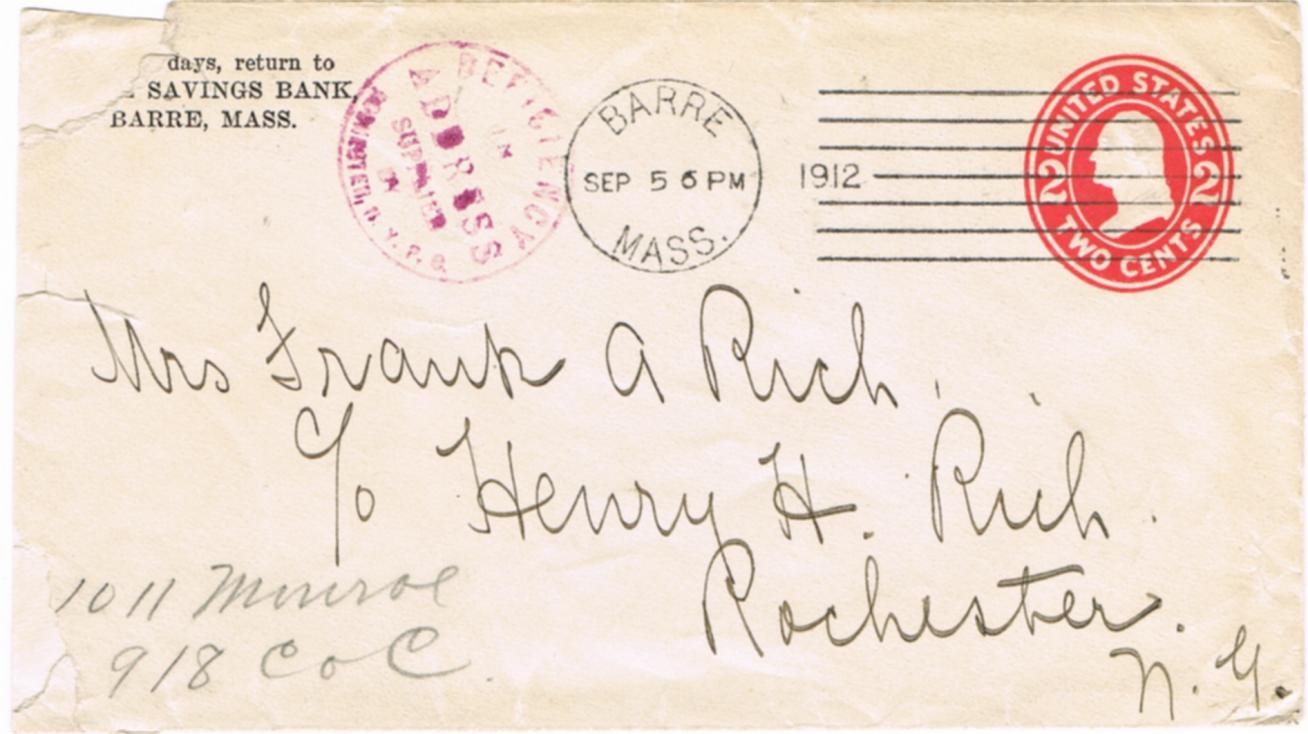 days, return to
SAVINGS BANK,
BARRE, MASS.
DEFICIENCY
IN
ADDRESS
SUPPLIED
BY
N.Y. P. O.
BARRE
SEP 5 6 PM
MASS.
1912
UNITED STATES
2 2
TWO CENTS
Mrs Frank A Rich,
C/o Henry H. Rich.
Rochester.
N. Y.
1011 Monroe
918 C of C